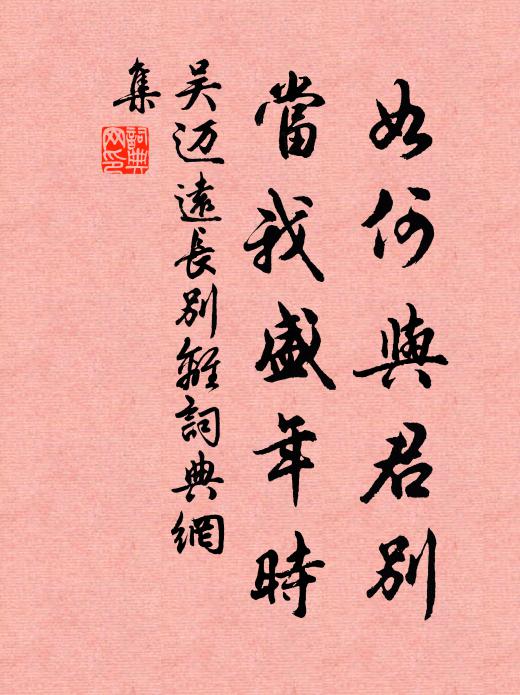 如何與君別
當我盛年時
吴迈遠長別離詞典網
集
詞典
网印